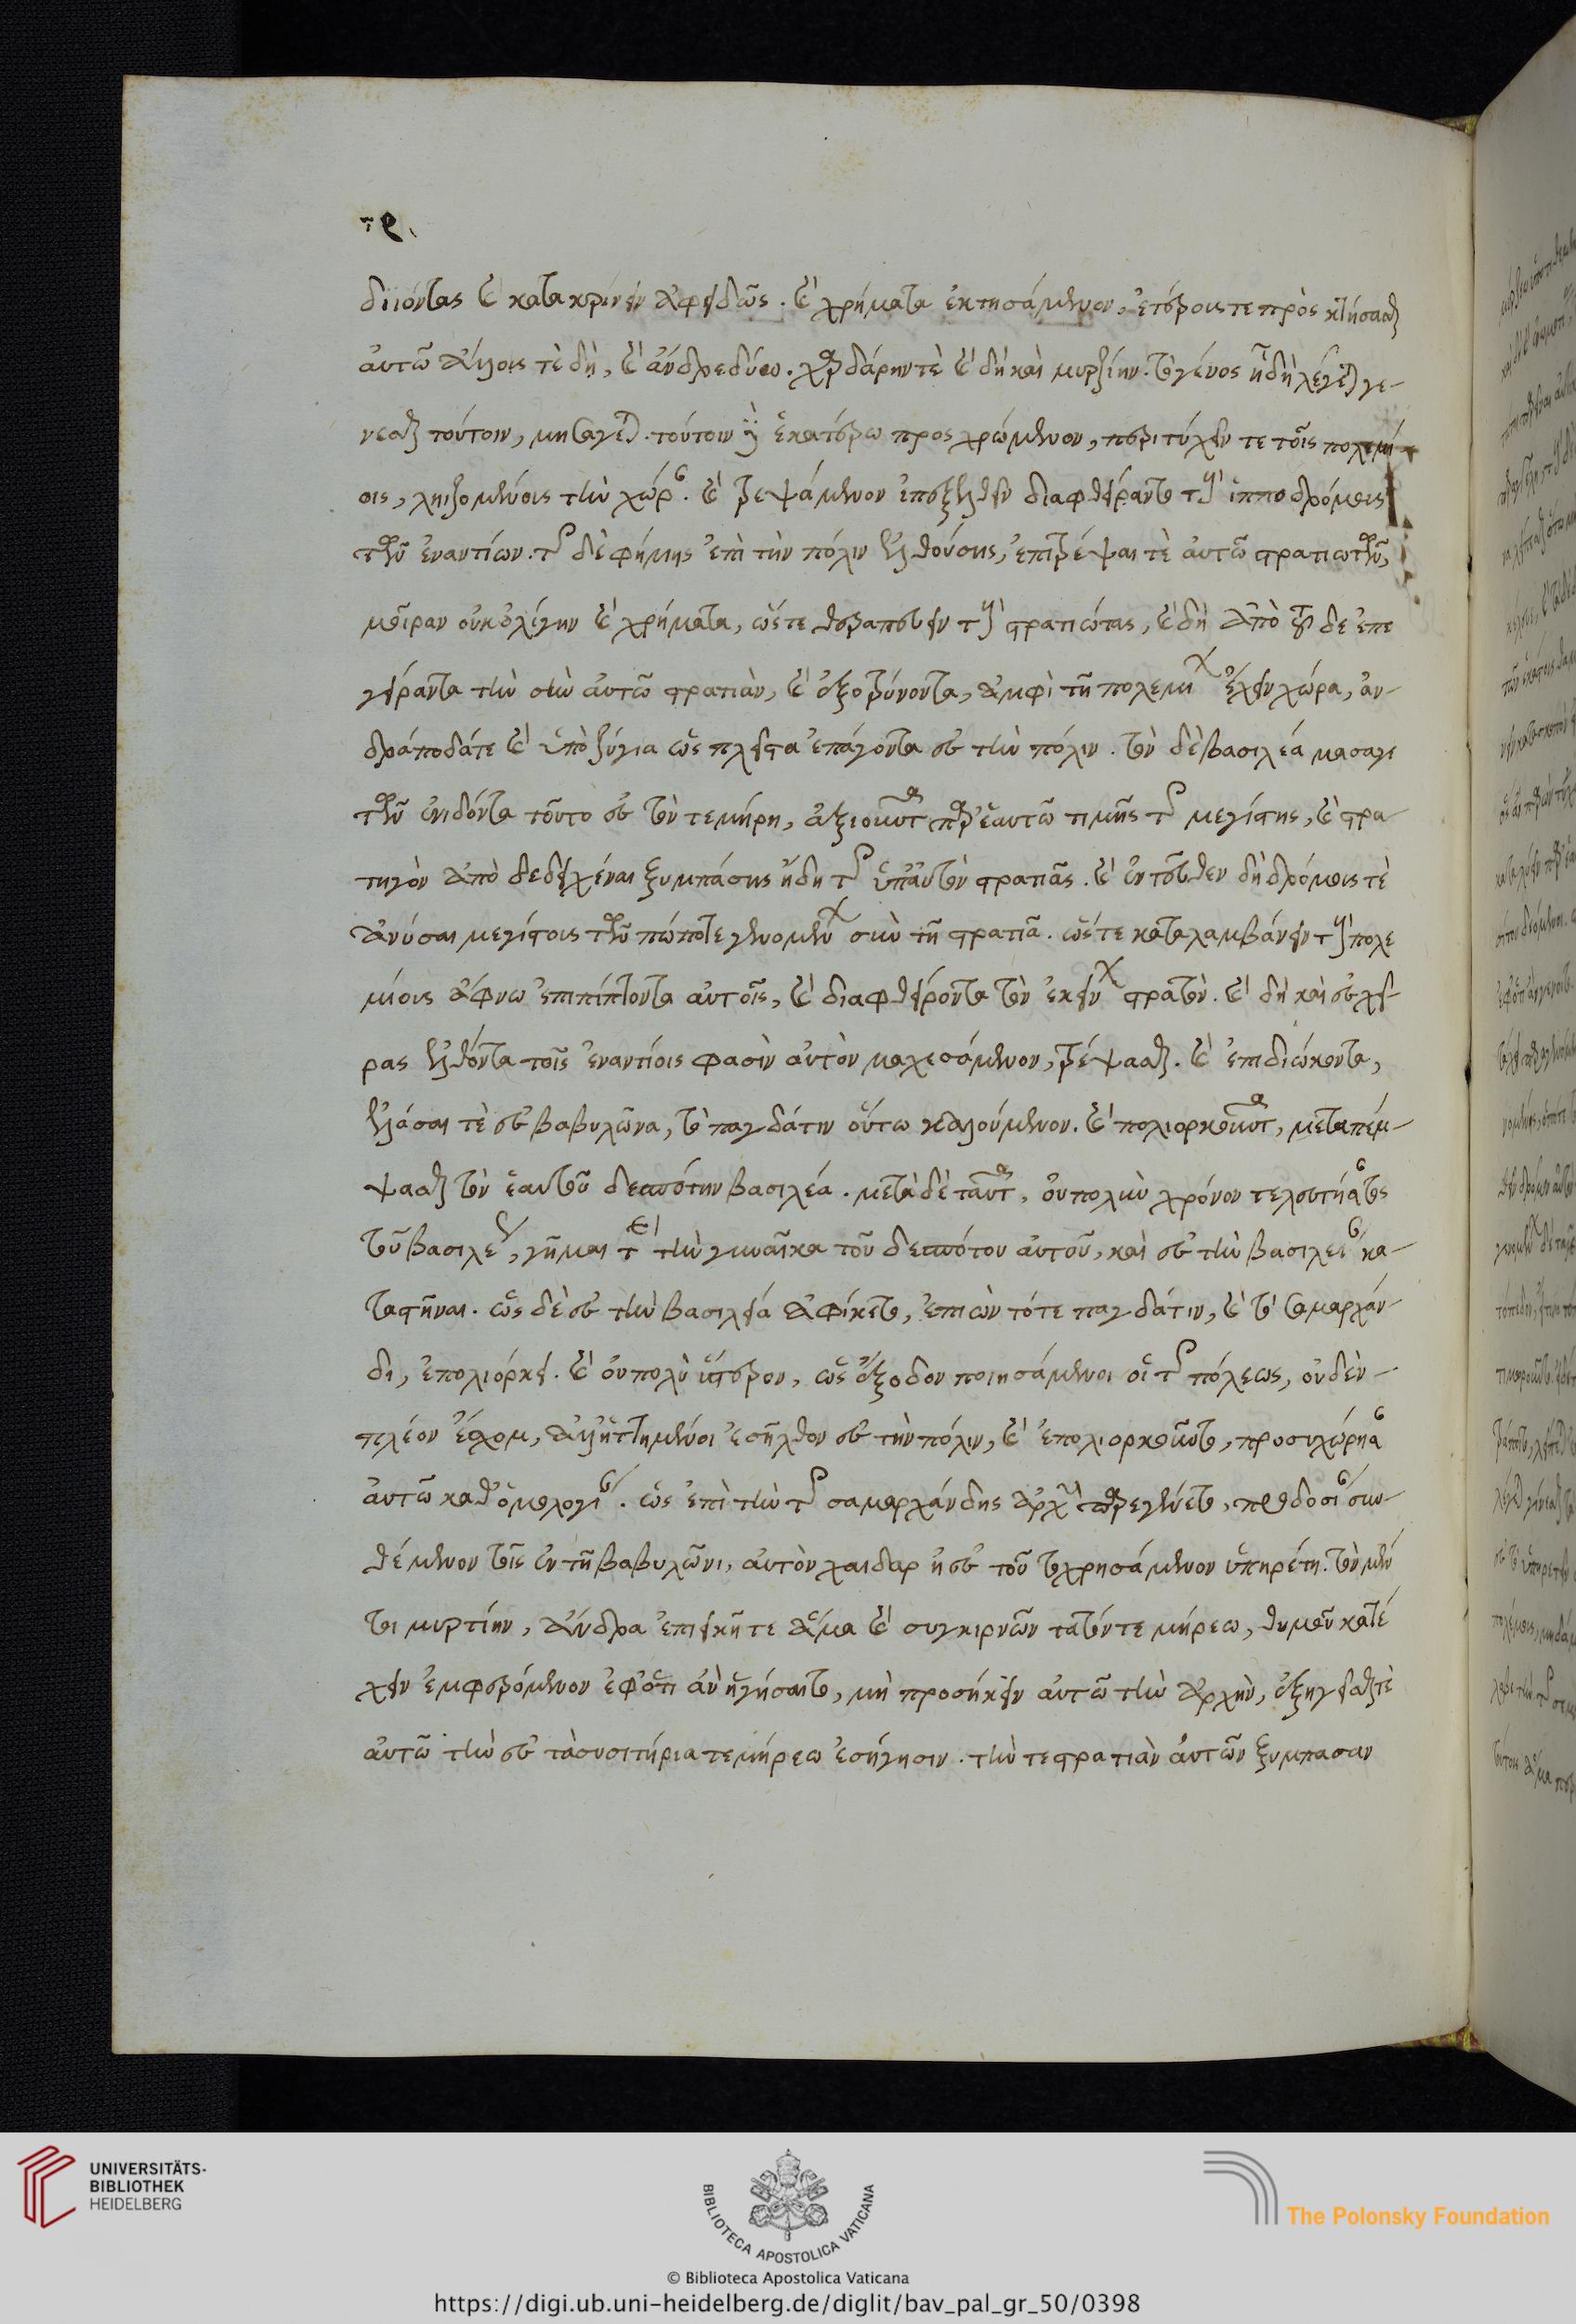 διιόντας καὶ κατακρίνειν ἀφειδῶς. καὶ χρήματα ἐκτησάμενον, ἑτέροις τε προσκτήσασθαι
αὐτῶ ἄλλοις τὲ δὴ, καὶ ἄνδρε δύω. χαρδάρην τὲ καὶ δὴ καὶ μυρξίην. τὸ γένος ἤδη λέγεται γε-
νέσθαι τούτοιν, μησαγέται. τούτοιν δὲ ἑκατέρω προσχρώμενον, περιτύχειν τε τοῖς πολεμί
οις, ληιζομένοις τὴν χώραν. καὶ τρεψάμενον ἐπεξελθεῖν διαφθείραντα τοὺς ἱπποδρόμους
τῶν ἐναντίων. τῆς δὲ φήμης ἐπὶ τὴν πόλιν ἐλθούσης, ἐπιτρέψαι τὲ αὐτῶ στρατιωτῶν,
μοῖραν οὐκ ὀλίγην καὶ χρήματα, ὥστε θεραπεύειν τοὺς στρατιώτας, καὶ δὴ ἀπὸ τοῦδε ἐπε
γείραντα τὴν σὺν αὐτῶ στρατιὰν, καὶ ἐξοτρύνοντα, ἀμφὶ τῆ πολεμίων ἔχειν χώρα, ἀν-
δράποδά τε καὶ ὑποζύγια ὡς πλεῖστα ἐπάγοντα ἐς τὴν πόλιν. τὸν δὲ βασιλέα μασαγε
τῶν ἐνιδόντα τοῦτο ἐς τὸν τεμήρη, ἀξιοῦντα παρ' ἑαυτῶ τιμῆς τῆς μεγίστης, καὶ στρα-
τηγὸν ἀποδεδειχέναι ξυμπάσης ἤδη τῆς ὑπ' αὐτὸν στρατιᾶς. καὶ ἐντεῦθεν δὴ δρόμους τὲ
ἀνύσαι μεγίστους τῶν πώποτε γενομένων σὺν τῆ στρατιᾶ. ὥστε καταλαμβάνειν τοὺς πολε
μίους ἄφνω ἐπιπίπτοντα αὐτοῖς, καὶ διαφθείροντα τὸν ἐκείνων στρατόν. καὶ δὴ καὶ ἐς χεῖ-
ρας ἐλθόντα τοῖς ἐναντίοις φασὶν αὐτὸν μαχεσάμενον, τρέψασθαι. καὶ ἐπιδιώκοντα,
ἐλάσαι τὲ ἐς βαβυλῶνα, τὸ παγδάτιν οὕτω καλούμενον. καὶ πολιορκοῦντα, μεταπέμ-
ψασθαι τὸν ἑαυτοῦ δεσπότην βασιλέα. μετὰ δὲ ταῦτα, οὐ πολὺν χρόνον τελευτήσαντος
τοῦ βασιλέως, γῆμαί τε τὴν γυναῖκα τοῦ δεσπότου αὐτοῦ, καὶ ἐς τὴν βασιλείαν κα-
ταστῆναι. ὡς δὲ ἐς τὴν βασιλείαν ἀφίκετο, ἐπιὼν τότε παγδάτιν, καὶ τὸ σαμαρχάν-
δι, ἐπολιόρκει. καὶ οὐ πολὺ ὕστερον, ὡς ἔξοδον ποιησάμενοι οἱ τῆς πόλεως, οὐδὲν-
πλέον ἔσχον, ἀλλ' ἡττημένοι ἐσῆλθον ἐς τὴν πόλιν, καὶ ἐπολιορκοῦντο, προσυχώρησαν
αὐτῶ καθ' ὁμολογίαν. ὡς ἐπὶ τὴν τῆς σαμαρχάνδης ἀρχὴν παρεγένετο, προδοσίαν συν-
θέμενον τοῖς ἐν τῆ βαβυλῶνι, αὐτὸν χαιδαρ ἢ ἐς τοῦτο χρησάμενον ὑπηρέτη. τὸν μέν
τοι μυρτίην, ἄνδρα ἐπιεικῆ τε ἅμα καὶ συγκιρνῶν τα τὸν τεμήρεω, θυμοῦ κατέ
χειν ἐμφερόμενον ἐφ' ὅτι ἂν ἡγήσαιτο, μὴ προσήκειν αὐτῶ τὴν ἀρχὴν, ἐξηγεῖσθαι τὲ
αὐτῶ τὴν ἐς τὰ συσιτήρια τεμήρεω ἐσήγησιν. τήν τε στρατιὰν αὐτῶν ξυμπασαν
UNIVERSITÄTS-
BIBLIOTHEK
HEIDELBERG
BIBLIOTECA APOSTOLICA VATICANA
The Polonsky Foundation
© Biblioteca Apostolica Vaticana
https://digi.ub.uni-heidelberg.de/diglit/bav_pal_gr_50/0398